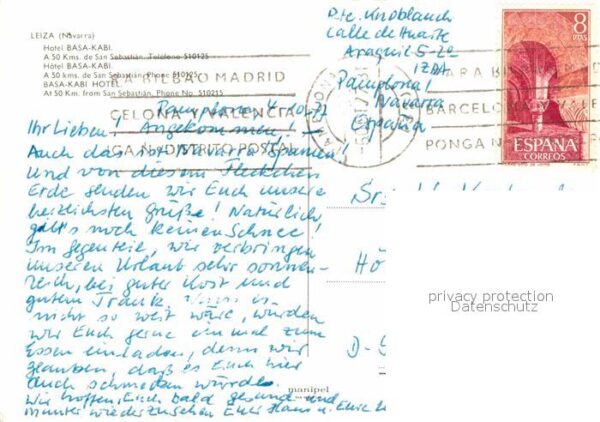 LEIZA (Navarra)
Hotel BASA-KABI.
A 50 Kms. de San Sebastián. Teléfono 510125
Hôtel BASA-KABI.
A 50 kms. de San Sebastián, Phone 510125
BASA-KABI HOTEL.
At 50 Km. from San Sebastián, Phone No. 510215
RA BILBAO MADRID
CELONA Y VALENCIA
IGA Nº DISTRITO POSTAL
Pamplona 4.10.77
Ihr Lieben, Angekommen!
Auch das ist Navarra (Spanien)!
Und von diesem Fleckchen
Erde senden wir Euch unsere
herzlichsten Grüße! Natürlich
gibt's noch keinen Schnee!
Im Gegenteil, wir verbringen
unseren Urlaub sehr sonnen-
reich, bei guter Kost und
gutem Trank. Wenn es
nicht so weit wäre, würden
wir Euch gerne einmal zum
Essen einladen, denn wir
glauben, daß es Euch hier
auch schmecken würde.
Wir hoffen, Euch bald gesund und
munter wiederzusehen Euer Hans u.
Knoblauch
Calle de Huarte
Araquil 5-2º
IZDA
Pamplona!
Navarra
España
8
PTAS
ESPAÑA
CORREOS
PARA
BARCELONA
PONGA Nº
D-
privacy protection
Datenschutz
manipel